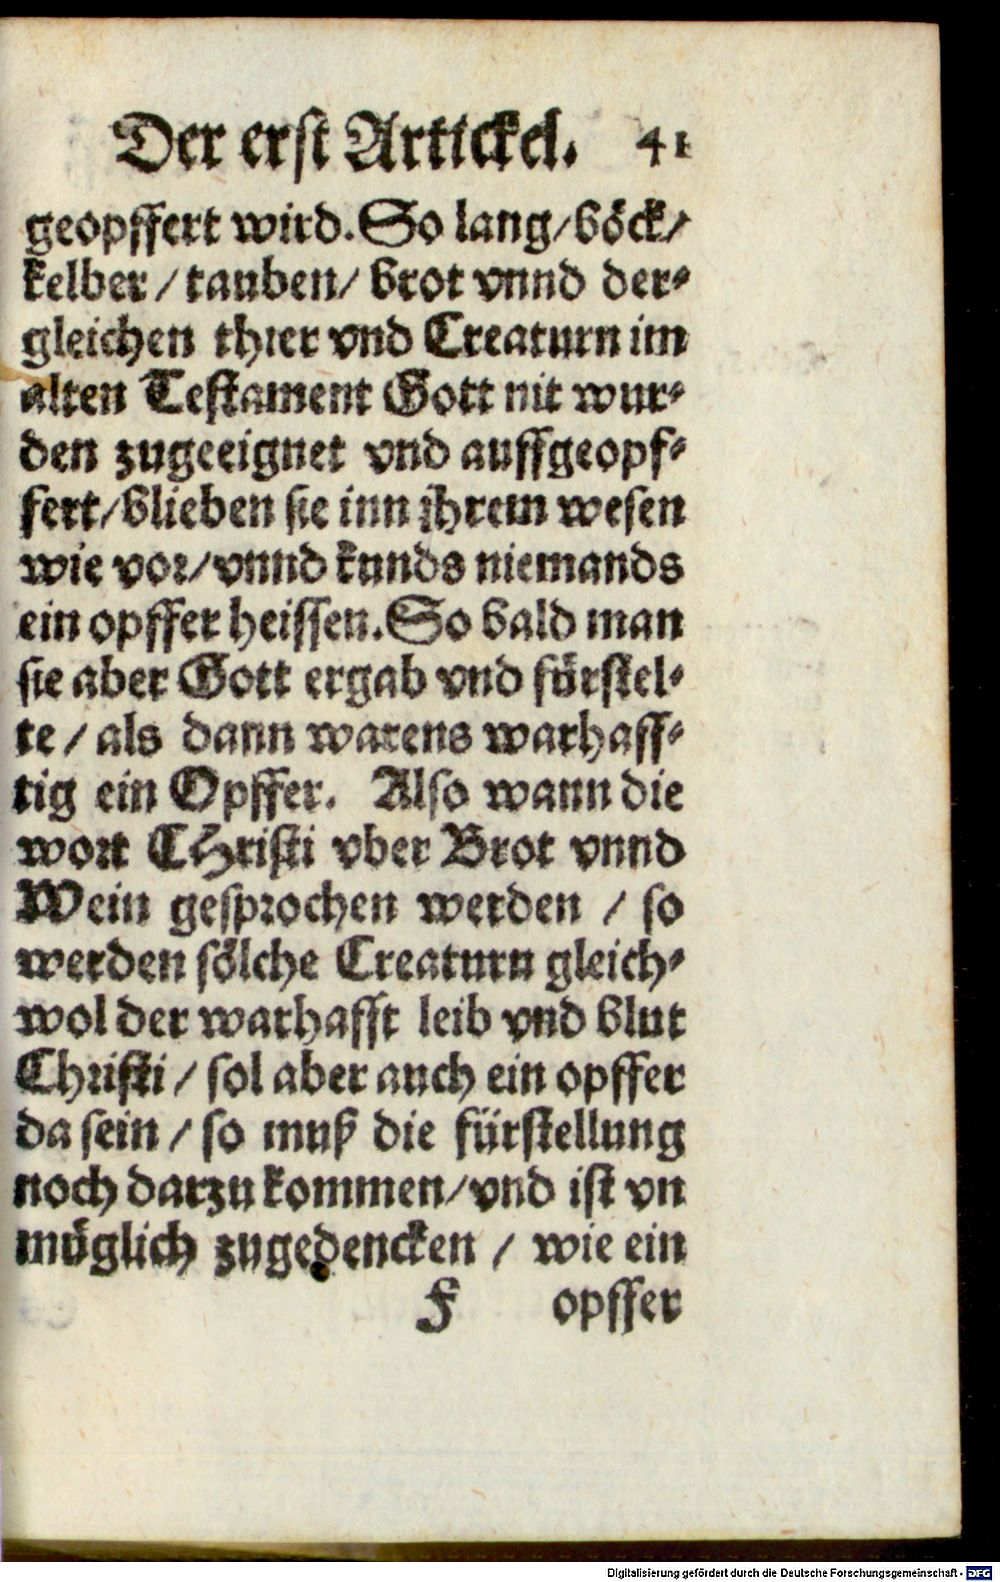 Der erst Artickel. 41
geopffert wird. So lang/böck/
kelber/tauben/brot vnnd der-
gleichen thier vnd Creaturn im
alten Testament Gott nit wur-
den zugeeignet vnd auffgeopf-
fert/blieben sie inn jhrem wesen
wie vor/vnnd kunds niemands
ein opffer heissen. So bald man
sie aber Gott ergab vnd fürstel-
te/als dann warens warhaff-
tig ein Opffer. Also wann die
wort CHristi vber Brot vnnd
Wein gesprochen werden/so
werden sölche Creaturn gleich-
wol der warhafft leib vnd blut
Christi/sol aber auch ein opffer
da sein/so muß die fürstellung
noch darzu kommen/vnd ist vn
müglich zugedencken/wie ein
F opffer
Digitalisierung gefördert durch die Deutsche Forschungsgemeinschaft - DFG